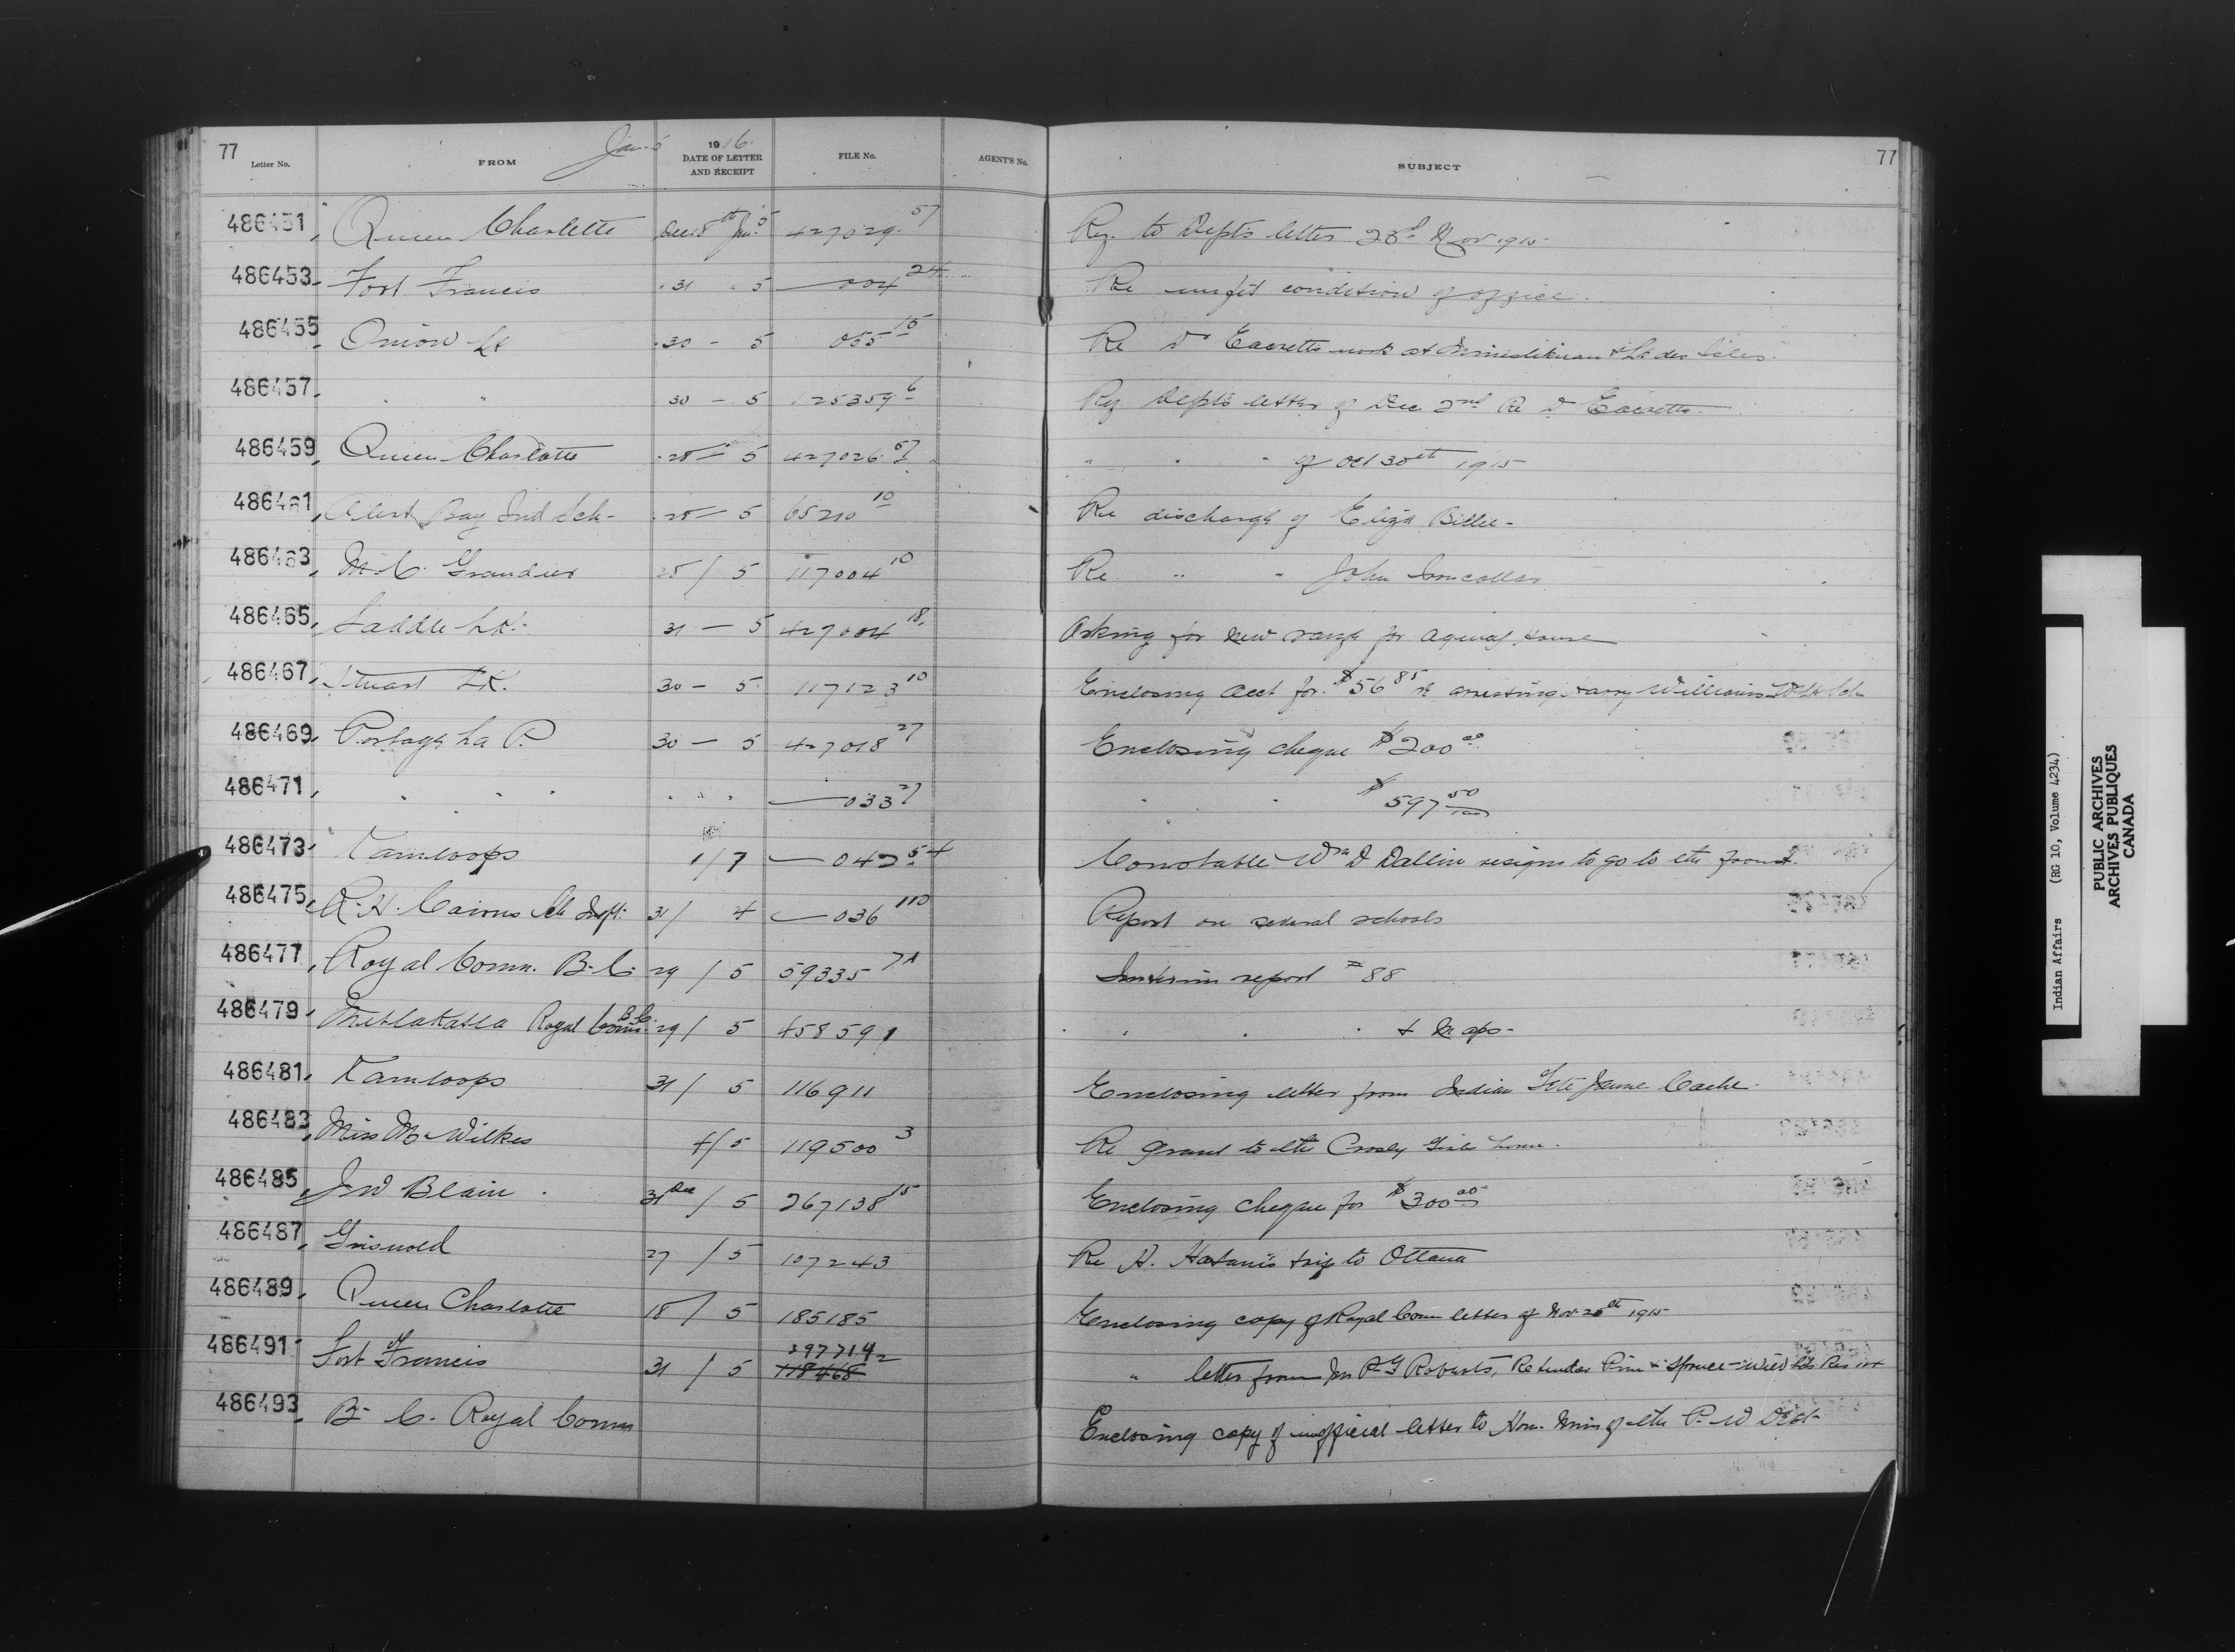 77 Jan 5 1916 77
Letter No. FROM DATE OF LETTER AND RECEIPT FILE No. AGENT'S No. SUBJECT
486451, Queen Charlotte Dec 18th Jan 5 427029 57 Rey. to Dept's letter 23d Nov 1915
486453 Fort Francis 31 " 5 — 004 24 Re unfit condition of office.
486455 Onion Lk 30 – 5 055 15 Re Dr Eacretts work at & Lac des Isles
486457 " " 30 – 5 125359 6 Rey Dept's letter of Dec 2nd Re Dr Eacretts
486459, Queen Charlotte 28 – 5 427026 57 " " " of Oct 30th 1915
486461, Alert Bay Ind Sch – 28 – 5 65210 10 Re discharge of Eliza Billee –
486463, M. C. Grandier 28 / 5 117004 10 Re " " John
486465, Saddle LK. 31 – 5 427004 18 Asking for new range for agency house
486467, Stuart LK. 30 – 5 117123 10 Enclosing acct for $56 85 re arresting Harry Williams
486469, Portage La P. 30 – 5 427018 27 Enclosing cheque $200 00
486471, " " " " " " — 033 27 " " $597 50/100
486473, Kamloops 1/7 — 042 54 Constable Wm D Dallin resigns to go to the front
486475, R. H. Cairns Sch Inspt. 31/ 4 — 036 110 Report on several schools
486477, Royal Comn. B. C. 29 / 5 59335 7A Interim report # 88
486479, Metlakatla Royal Comn. B.C. 29/ 5 458591 " " " & Maps –
486481, Kamloops 31/ 5 116911 Enclosing letter from Indian Tete Jaune Cache.
486483, Miss M. Wilkes 4/5 119500 3 Re grant to the Crosby Girls home.
486485, J W Blain 31 Dec / 5 267138 15 Enclosing Cheque for $300 00
486487, Griswold 27 / 5 107243 Re H. trip to Ottawa
486489, Queen Charlotte 18 / 5 185185 Enclosing copy of Royal Comn letter of Nov 26th 1915
486491 Fort Francis 31 / 5 297714 2 118468 " letter from Mr R G Roberts, Re tender Pine & Spruce – Wild Lds Res
486493, B. C. Royal Comn Enclosing copy of unofficial letter to Hon. Min of the P. W Dept
Indian Affairs (RG 10, Volume 4234)
PUBLIC ARCHIVES
ARCHIVES PUBLIQUES
CANADA